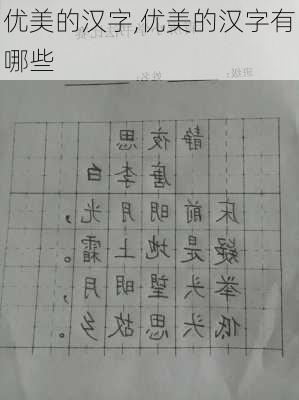 优美的汉字,优美的汉字有
哪些
班级: 姓名:
静夜思
唐 李白
床前明月光，
疑是地上霜。
举头望明月，
低头思故乡。